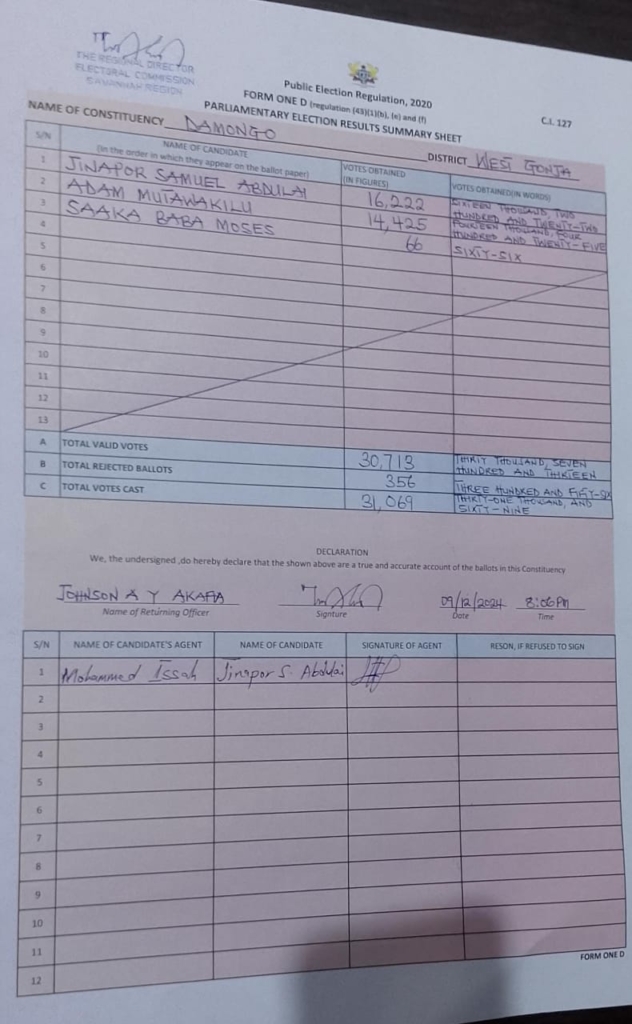 THE REGIONAL DIRECTOR
ELECTORAL COMMISSION
SAVANNAH REGION
Public Election Regulation, 2020
FORM ONE D (regulation (43)(1)(b), (e) and (f)
C.I. 127
PARLIAMENTARY ELECTION RESULTS SUMMARY SHEET
NAME OF CONSTITUENCY DAMONGO
DISTRICT WEST GONJA
S/N NAME OF CANDIDATE (in the order in which they appear on the ballot paper) VOTES OBTAINED (IN FIGURES) VOTES OBTAINED(IN WORDS)
1 JINAPOR SAMUEL ABDULAI 16,222 SIXTEEN THOUSAND, TWO HUNDRED AND TWENTY-TWO
2 ADAM MUTAWAKILU 14,425 FOURTEEN THOUSAND, FOUR HUNDRED AND TWENTY-FIVE
3 SAAKA BABA MOSES 66 SIXTY-SIX
4
5
6
7
8
9
10
11
12
13
A TOTAL VALID VOTES 30,713 THIRTY THOUSAND, SEVEN HUNDRED AND THIRTEEN
B TOTAL REJECTED BALLOTS 356 THREE HUNDRED AND FIFTY-SIX
C TOTAL VOTES CAST 31,069 THIRTY-ONE THOUSAND, AND SIXTY-NINE
DECLARATION
We, the undersigned ,do hereby declare that the shown above are a true and accurate account of the ballots in this Constituency
JOHNSON A Y AKAFIA 09/12/2024 8:06PM
Name of Returning Officer Signture Date Time
S/N NAME OF CANDIDATE'S AGENT NAME OF CANDIDATE SIGNATURE OF AGENT RESON, IF REFUSED TO SIGN
1 Mohammed Issah Jinapor S. Abdulai
2
3
4
5
6
7
8
9
10
11
12
FORM ONE D